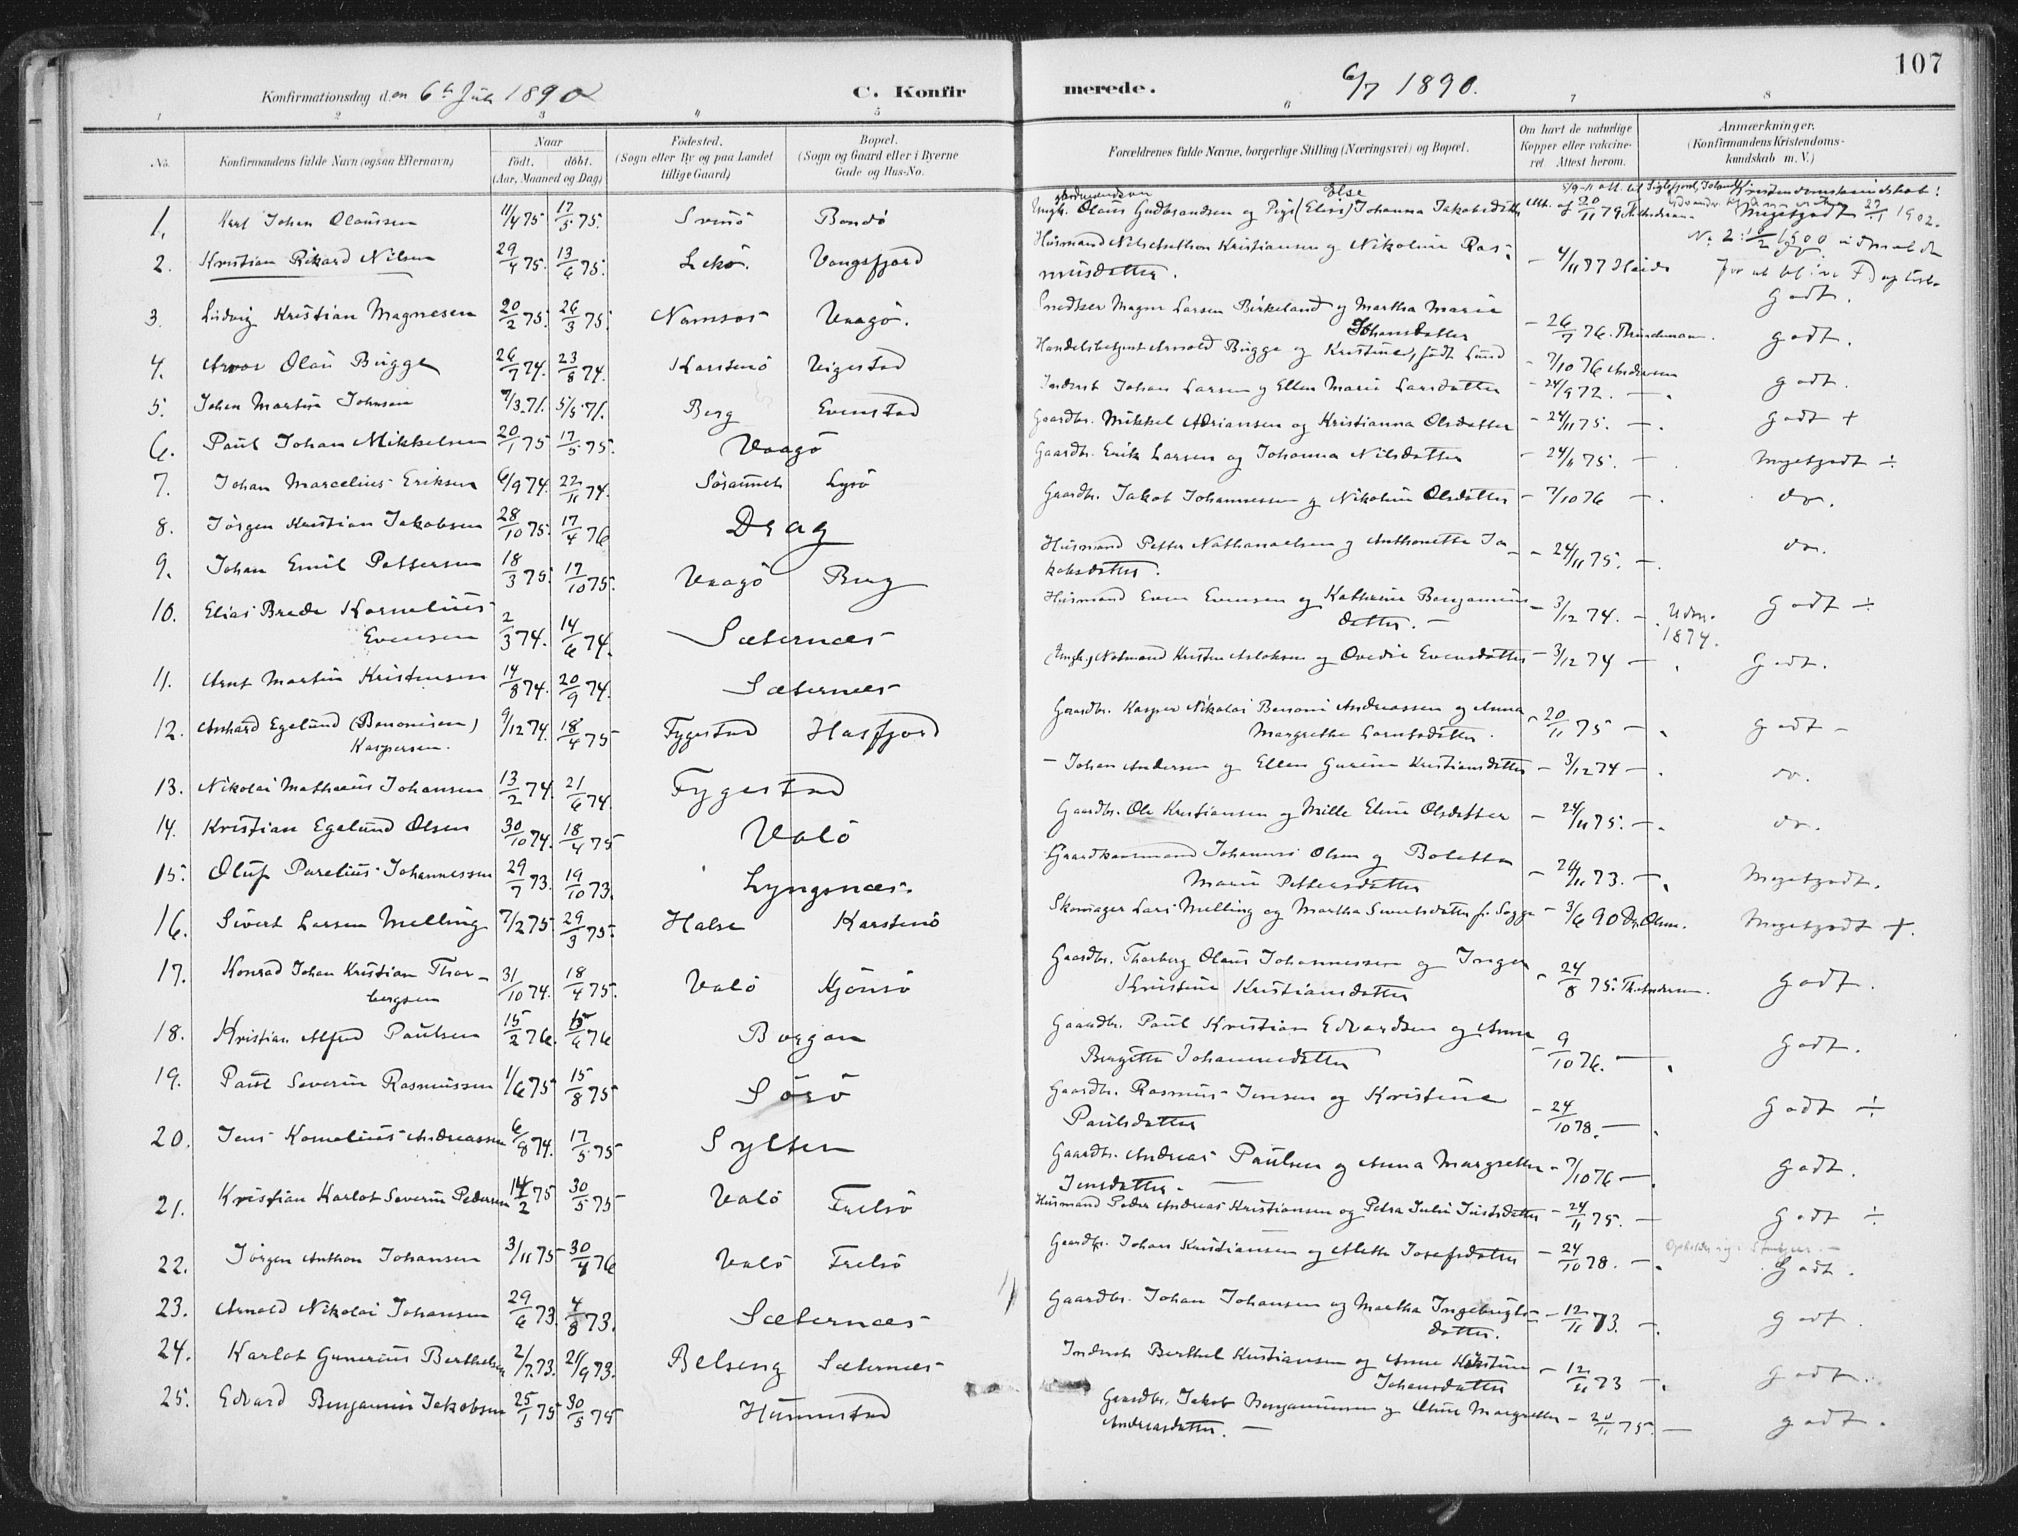 107
Konfirmationsdag den 6te Juli 1890
C. Konfirmerede.
6/7 1890.
1 2 3 4 5 6 7 8
No.
Konfirmandens fulde Navn (ogsaa Efternavn)
Naar
Født. døbt.
(Aar, Maaned og Dag)
Fødested.
(Sogn eller By og paa Landet
tillige Gaard)
Bopæl.
(Sogn og Gaard eller i Byerne
Gade og Hus-No.
Forældrenes fulde Navne, borgerlige Stilling (Næringsvei) og Bopæl.
Om havt de naturlige
Kopper eller vaccine-
ret. Attest herom.
Anmærkninger.
(Konfirmandens Kristendoms-
kundskab m. V.)
Kristendomskundskab:
1. Karl Johan Olaussen 11/4 75 17/5 75. Svinö Bondö Ungk. Olaus Gudbrandsen og Pige (Elisi) Johanna Jakobsdatter Att. af 20/11 79 Megetgodt 27/1 1902.
Else
2. Kristian Rikard Nilsen 29/4 75. 13/6 75. Lekö. Vangsfjord Husmand Nils Anthon Kristiansen og Nikoline Ras-
musdatter. — 4/11 87
No 2: 10/2 1900 udmeldt
godt.
3. Ludvig Kristian Magnesen 20/2 75. 26/3 75. Namsos Vaagö. Snedker Magne Larsen Birkeland og Martha Marie
Johansdatter — 26/7 76. godt.
4. Arvos Olau Bugge 26/7 74. 23/8 74. Karstenö Vigestad Handelsbetjent Arnold Bugge og Kristine, født Lund — 7/10 76 Andersen godt.
5. Johan Martin Johnsen 7/3 71. 5/5 71. Berg Evenstad Inderst Johan Larsen og Ellen Marie Larsdatter — 24/9 72. — godt +
6. Paul Johan Mikkelsen 20/1 75 17/5 75. Vaagö Gaardbr. Mikkel Adriansen og Kristianna Olsdatter — 24/11 75. — Megetgodt ÷
7. Johan Marcelius Eriksen 6/9 74. 22/11 74. Lysö Gaardbr. Erik Larsen og Johanna Nilsdatter — 24/11 75. — do.
8. Jörgen Kristian Jakobsen 28/10 75. 17/4 76 Drag Gaardbr. Jakob Johannessen og Nikoline Olsdatter — 7/10 76 — do.
9. Johan Emil Pettersen 18/3 75. 17/10 75. Vaagö Berg Husmand Petter Nathanaelsen og Anthonette Ja-
kobsdatter. — 24/11 75. —
10. Elias Brede Kornelius
Evensen 2/3 74. 14/6 74. Sæternæs Husmand Even Evensen og Kathrine Benjamins
datter. — 3/12 74. — Udv. 1874. Godt ÷
11. Arnt Martin Kristensen 14/8 74. 20/9 74. Sæternæs (Ungk.) Notmand Kristen Aslaksen og Ovedie Evensdatter — 3/12 74 — Godt.
12. Anhard Egelund (Benonisen)
Kaspersen. 9/12 74. 18/4 75 Fygestad Hasfjord Gaardbr. Kasper Nikolai Benoni Andreassen og Anna
Margrethe Lorntsdatter. — 20/11 75 — godt —
13. Nikolai Mathæus Johansen 13/2 74. 21/6 74. Fygestad — Johan Andersen og Ellen Gurine Kristiansdatter — 3/12 74 — do.
14. Kristian Egelund Olsen 30/10 74. 18/4 75 Valö Gaardbr. Ole Kristiansen og Mille Eline Olsdatter — 24/11 75. — do.
15. Oluf Parelius Johannessen 29/7 73. 19/10 73. Lyngsnæs. Gaardkaarmand Johannes Olsen og Bolette
Marie Pettersdatter — 24/11 73. — Megetgodt.
16. Sivert Larsen Melling 7/2 75 29/3 75. Halse Karstenö Skomager Lars Melling og Martha Sivertsdatter — 3/6 90 Dr. Olsen. Megetgodt +.
17. Konrad Johan Kristian Thor-
bergsen 31/10 74. 18/4 75. Valö Kjönsö Gaardbr. Thorberg Olaus Johannessen og Inger
Kristine Kristiansdatter — 24/8 75. Th. Andersen. godt.
18. Kristian Alfred Paulsen 15/2 76. 15/6 76 Borgan Gaardbr. Paul Kristian Edvardsen og Anne
Bergitte Johannesdatter — 9/10 76. — Godt.
19. Paul Severin Rasmussen 1/6 75 15/8 75 Sörö Gaardbr. Rasmus Jensen og Kristine
Paulsdatter — 24/10 78. — Godt ÷
20. Jens Kornelius Andreassen 6/8 74. 17/5 75 Sylten Gaardbr. Andreas Paulsen og Anna Margrethe
Jensdatter. — — 7/10 76 — godt.
21. Kristian Karlot Severin Pedersen 14/2 75 30/5 75 Valö Frelsö Husmand Peder Andreas Kristiansen og Petra Julie Justsdatter — 24/11 75. — Godt ÷
22. Jörgen Anthon Johansen 3/11 75 30/4 76 Valö Frelsö Gaardbr. Johan Kristiansen og Alette Josefsdatter — 24/10 78. — Godt.
23. Arnold Nikolai Johansen 29/6 73 4/8 73. Sæternæs Gaardbr. Johan Johansen og Martha Ingebrigts-
datter. — 12/11 73. — godt.
24. Karlot Gunerius Berthelsen 2/7 73. 21/9 73. Belseng Sæternæs Inderst Berthel Kristiansen og Anne Kristine
Johansdatter — 12/11 73 — godt.
25. Edvard Benjamin Jakobsen 25/1 75 30/5 75 Hunnestad Gaardbr. Jakob Benjaminsen og Oline Margrethe
Andreasdatter. — — 20/11 75. — godt.